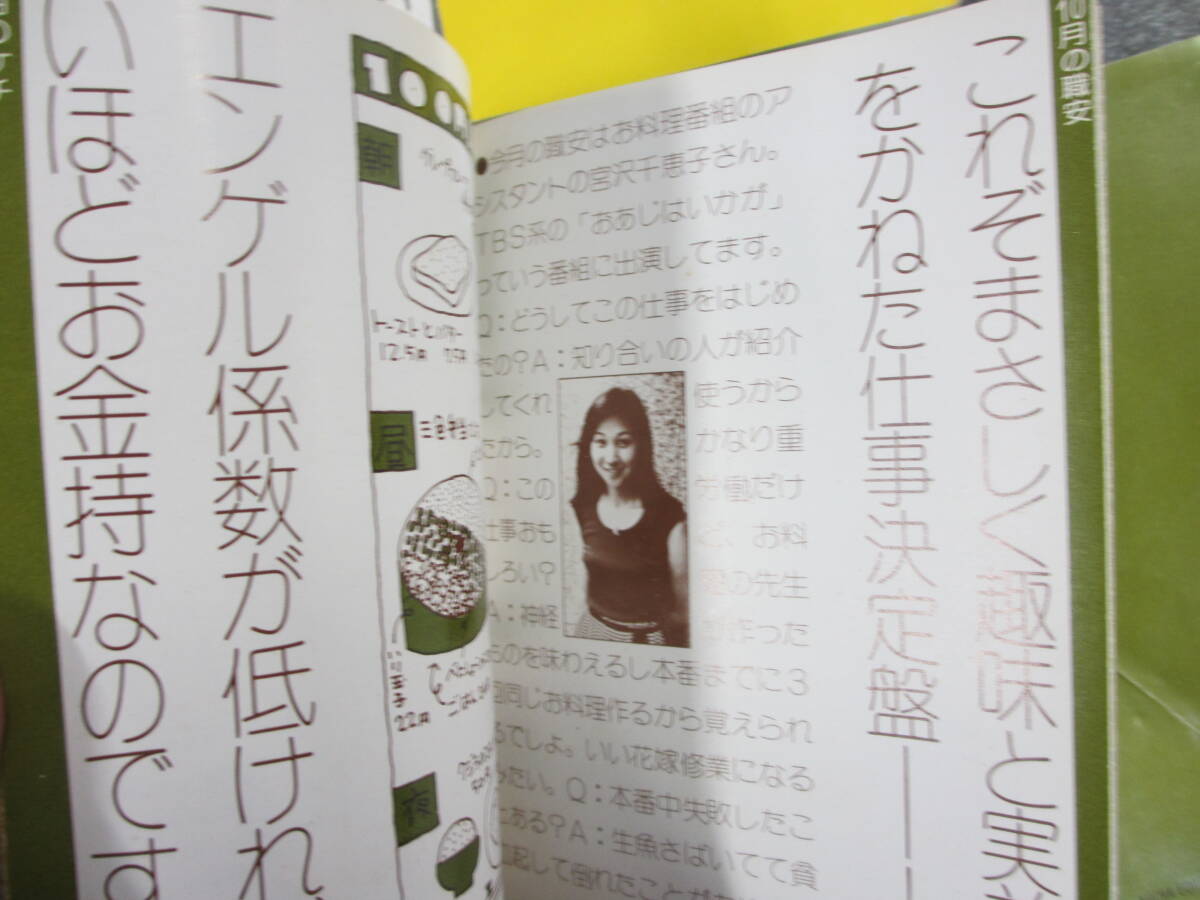 10月の職安
これぞまさしく趣味と実
をかねた仕事決定盤――
●今月の職安はお料理番組のア
シスタントの宮沢千恵子さん。
TBS系の「おあじはいかが」
っていう番組に出演してます。
Q:どうしてこの仕事をはじめ
たの?A:知り合いの人が紹介
してくれ
たから。
Q:この
仕事おも
しろい?
A:神経
使うから
かなり重
労働だけ
ど、お料
理の先生
が作った
ものを味わえるし本番までに3
回同じお料理作るから覚えられ
るでしょ。いい花嫁修業になる
みたい。Q:本番中失敗したこ
とある?A:生魚さばいてて貧
に起して倒れたことが
10
朝
トーストとバター
12.5円
昼
いり玉子
22円
夜
エンゲル係数が低けれ
いほどお金持なのです